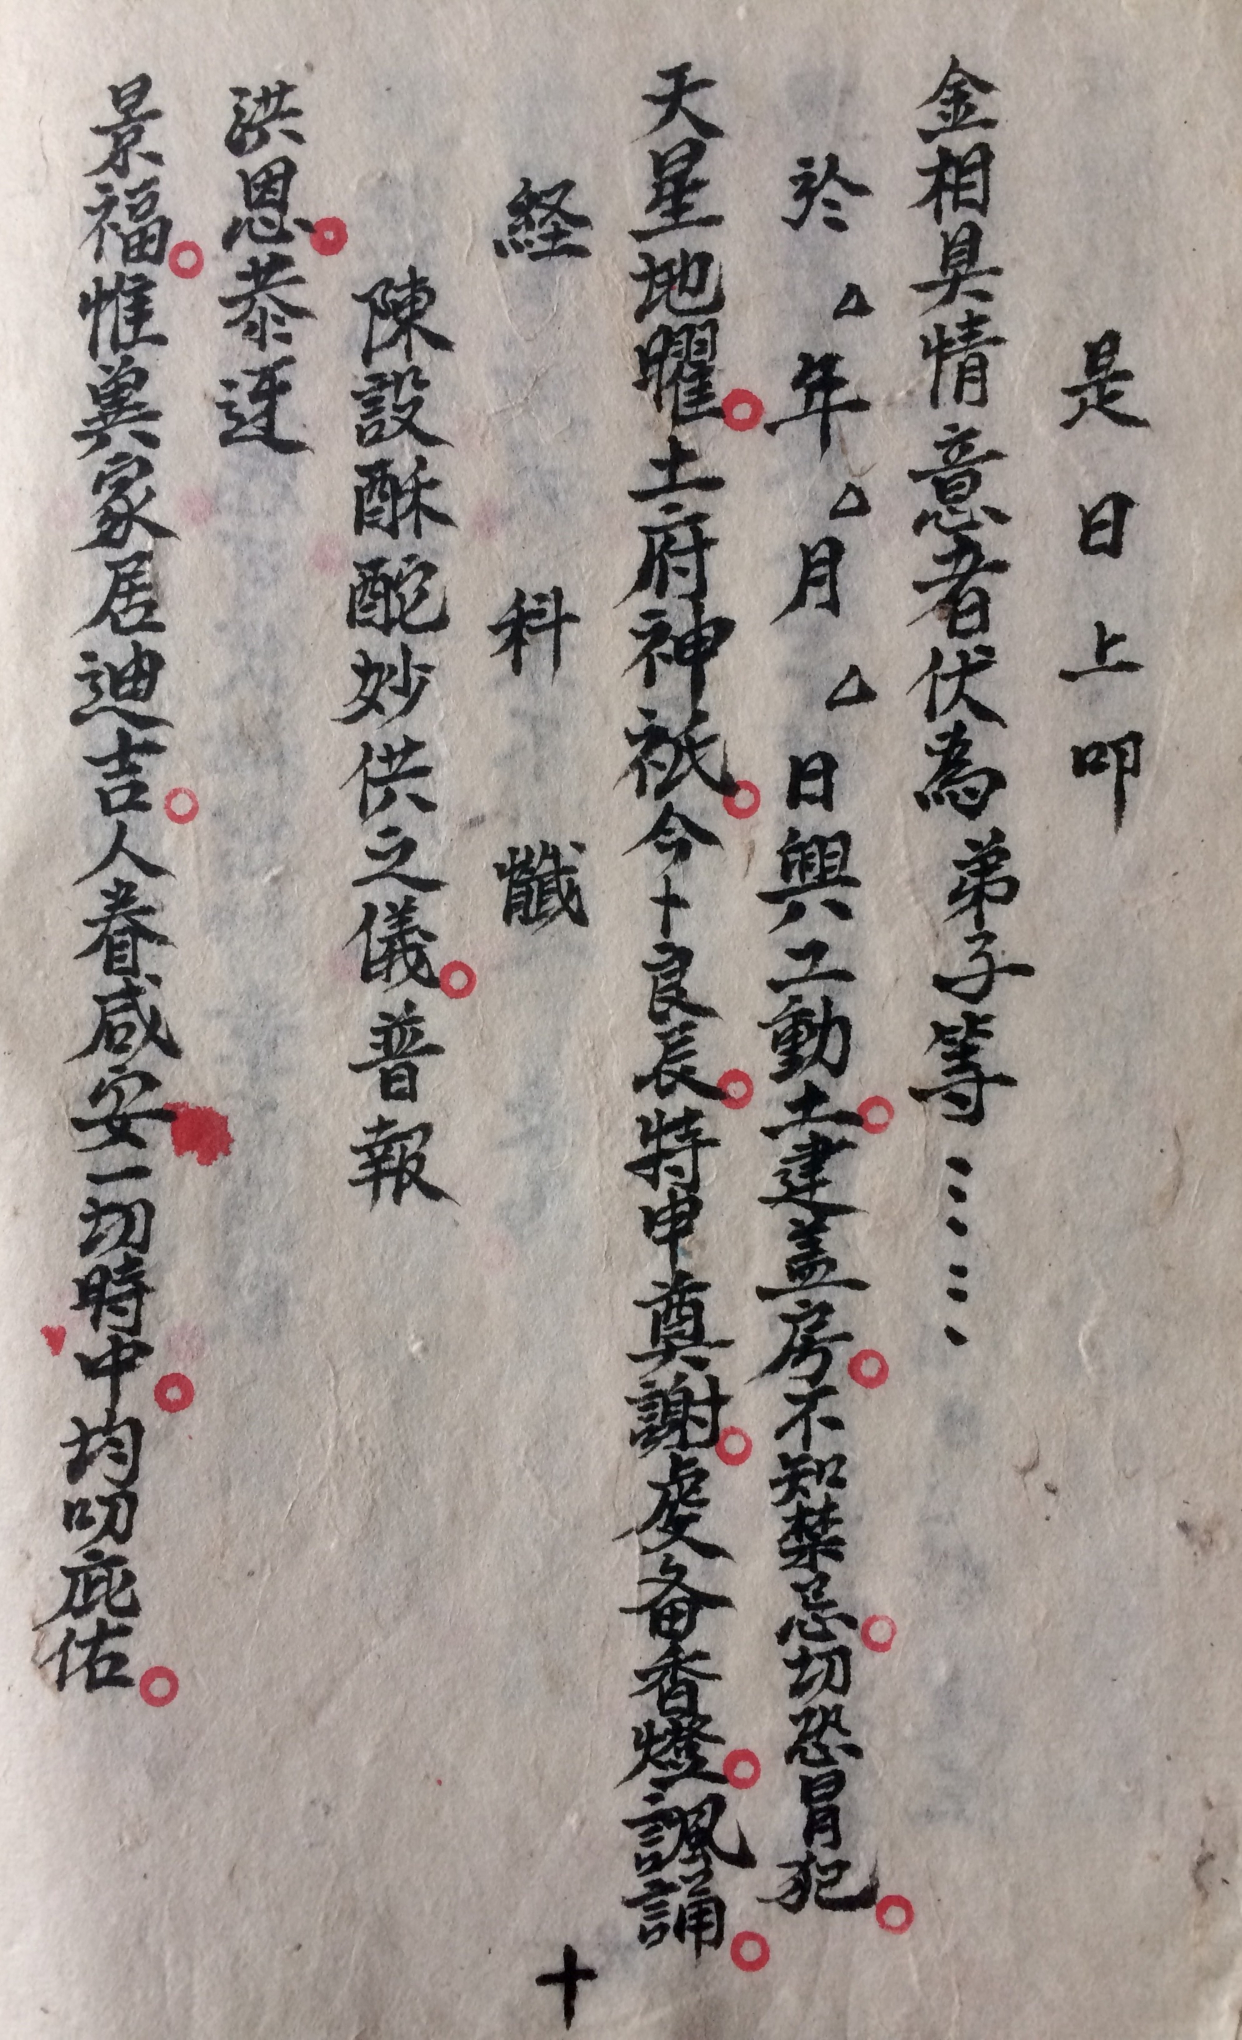 是日上叩
金相具情意者伏為弟子等⋮⋮
於△年△月△日興工動土。建盖房。不知禁忌。切恐冒犯。
天星地曜。土府神祇。今卜良辰。特申奠謝。虔备香燈。諷誦。
経科懺
陳設酥酡妙供之儀。普報
洪恩。恭迓
景福。惟兾家居迪吉。人眷咸安。一切時中。均叨庇佑。
十